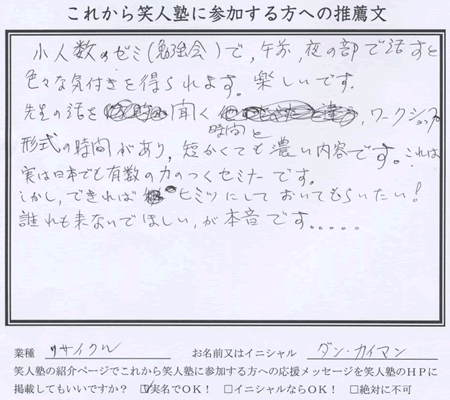 これから笑人塾に参加する方への推薦文
小人数のゼミ(勉強会)で,午前,夜の部で話すと
色々な気付きを得られます。楽しいです。
先生の話を 聞く 時間と,ワークショップ
形式の時間があり,短かくても濃い内容です。これは
実は日本でも有数の力のつくセミナーです。
しかし,できれば ヒミツにしておいてもらいたい!
誰れも来ないでほしい,が本音です.....
業種 リサイクル お名前又はイニシャル ダン・カイマン
笑人塾の紹介ページでこれから笑人塾に参加する方への応援メッセージを笑人塾のHPに
掲載してもいいですか? ☑実名でOK! □イニシャルならOK! □絶対に不可